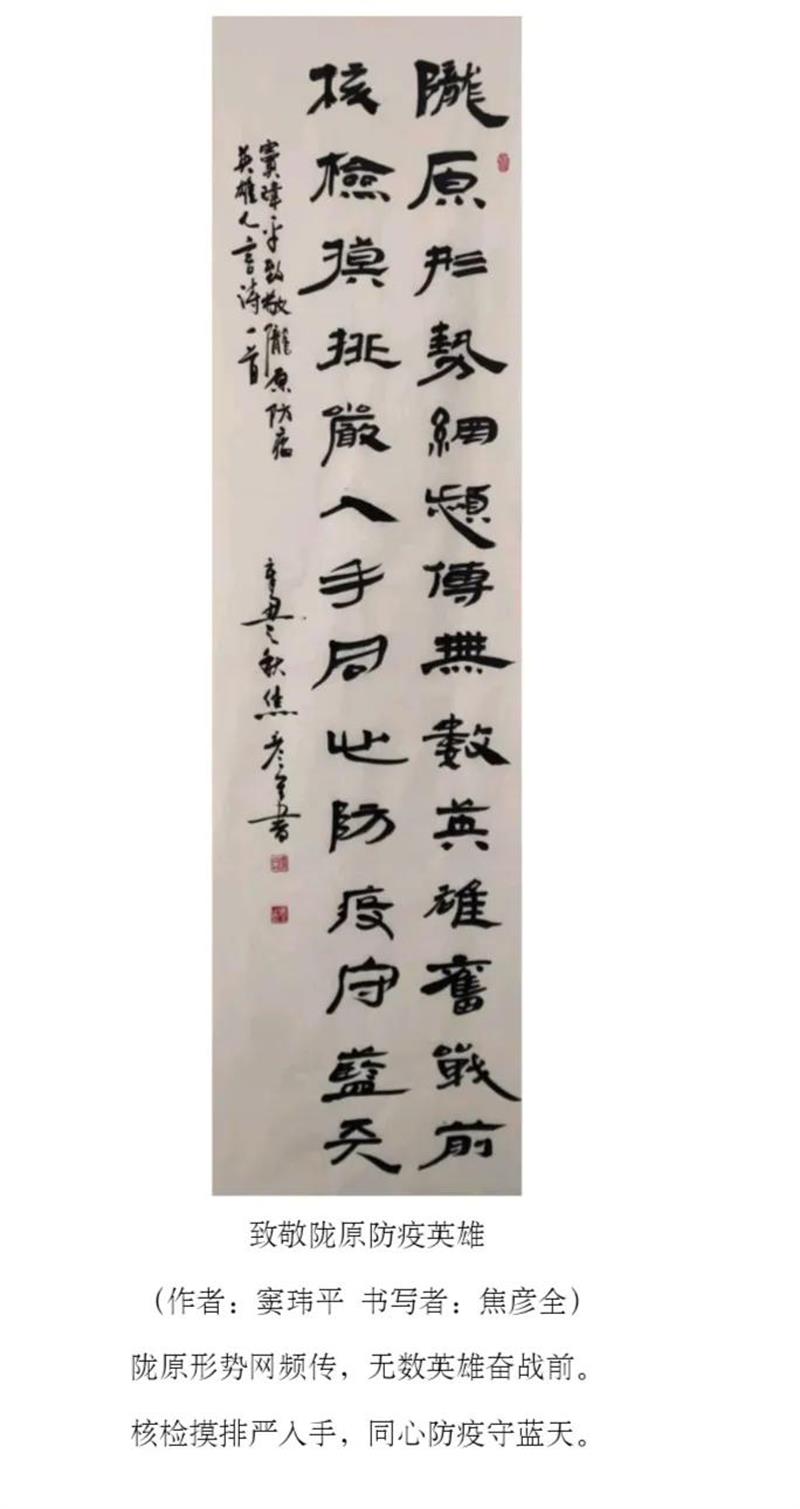 隴原形勢網頻傳無數英雄奮戰前
核檢摸排嚴入手同心防疫守藍天
窦瑋平致敬隴原防疫
英雄七言诗一首
辛丑之秋焦彦全書
致敬陇原防疫英雄
（作者：窦玮平 书写者：焦彦全）
陇原形势网频传，无数英雄奋战前。
核检摸排严入手，同心防疫守蓝天。